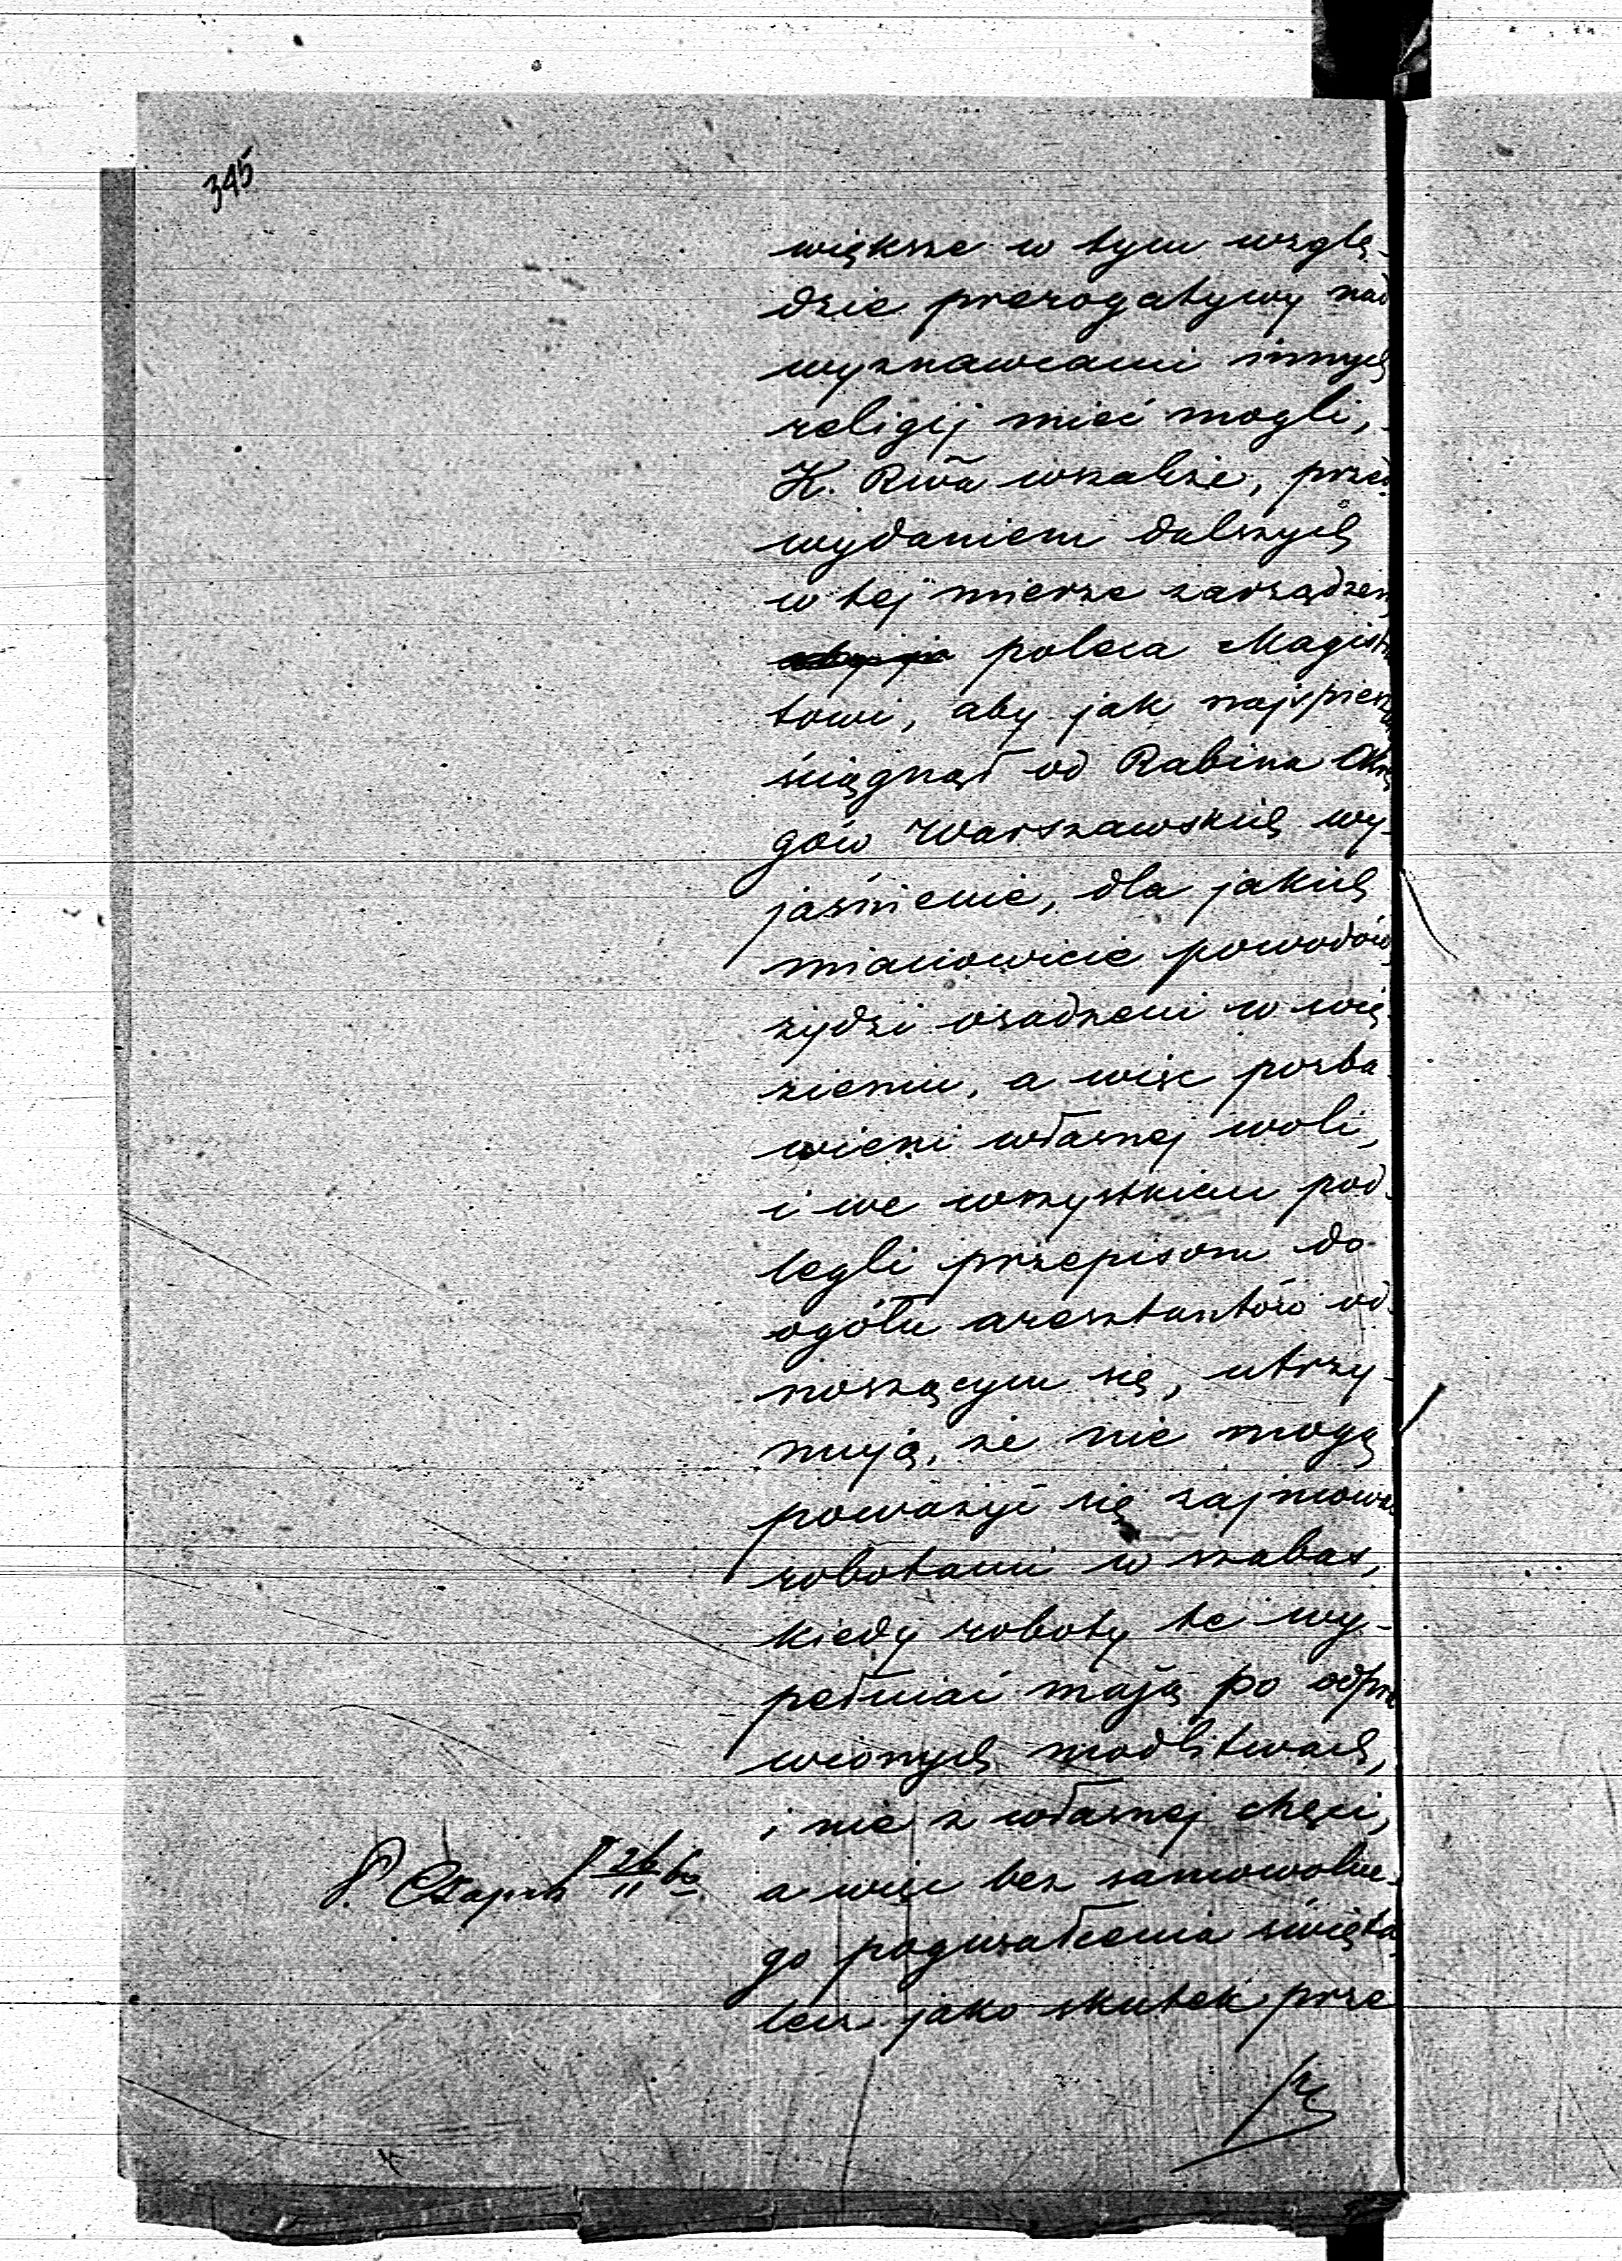 345
większe w tym wzglę-
dzie prerogatywy nad
wyznawcami innych
religij mieć mogli,
K. Rwa wszakże, przed
wydaniem dalszych
w tej mierze zarządzeń
poleca Magistra
towi, aby jak najspiesz
ściągnął od Rabina Okrę
gów Warszawskich wy-
jaśnienie, dla jakich
mianowicie powodów
żydzi osadzeni w wię
zieniu, a więc pozba
wieni własnej woli,
i we wszystkiem pod
legli przepisom do
ogółu aresztantów od-
noszącym się, utrzy-
mują, że nie mogą
poważyć się zajmowa
robotami w szabas,
kiedy roboty te wy-
pełniać mają po odpra
wionych modlitwach,
i nie z własnej chęci,
a więc bez samowolne-
go pogwałcenia święta,
lecz jako skutek prze